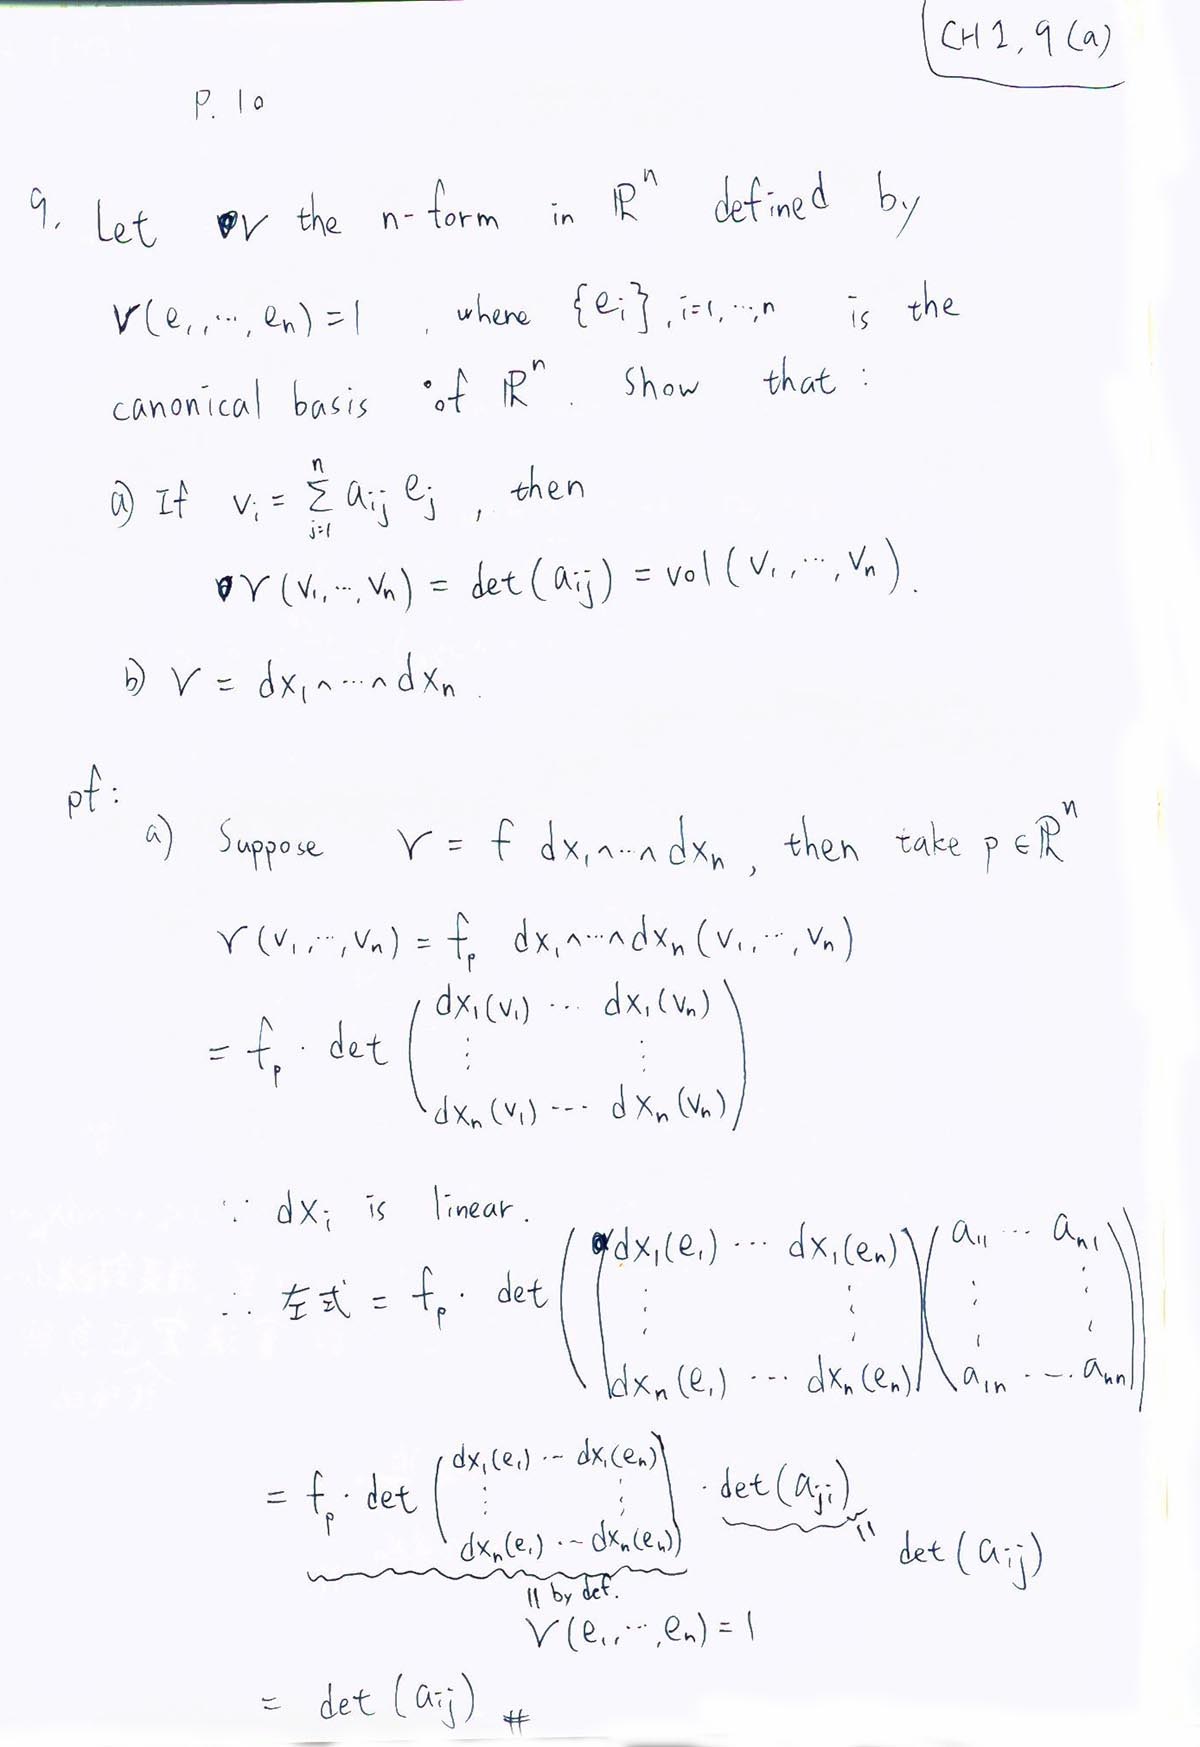 CH 1, 9 (a)
P. 10
9. Let ν the n-form in ℝⁿ defined by
ν(e₁, ⋯, eₙ) = 1 , where {eᵢ}, i=1, ⋯, n is the
canonical basis of ℝⁿ. Show that :
a) If vᵢ = Σⁿⱼ₌₁ aᵢⱼ eⱼ , then
ν(v₁, ⋯, vₙ) = det(aᵢⱼ) = vol(v₁, ⋯, vₙ).
b) ν = dx₁∧⋯∧dxₙ.
pf:
a) Suppose ν = f dx₁∧⋯∧dxₙ, then take p∈ℝⁿ
ν(v₁, ⋯, vₙ) = fₚ dx₁∧⋯∧dxₙ(v₁, ⋯, vₙ)
= fₚ · det ( dx₁(v₁) ⋯ dx₁(vₙ)
⋮ ⋮
dxₙ(v₁) ⋯ dxₙ(vₙ) )
∵ dxᵢ is linear.
∴ 左式 = fₚ · det ( ( dx₁(e₁) ⋯ dx₁(eₙ) ) ( a₁₁ ⋯ aₙ₁ )
⋮ ⋮ ⋮ ⋮
dxₙ(e₁) ⋯ dxₙ(eₙ) ) ( a₁ₙ ⋯ aₙₙ ) )
= fₚ · det ( dx₁(e₁) ⋯ dx₁(eₙ)
⋮ ⋮
dxₙ(e₁) ⋯ dxₙ(eₙ) ) · det(aⱼᵢ)
|| det(aᵢⱼ)
|| by def.
ν(e₁, ⋯, eₙ) = 1
= det(aᵢⱼ) #